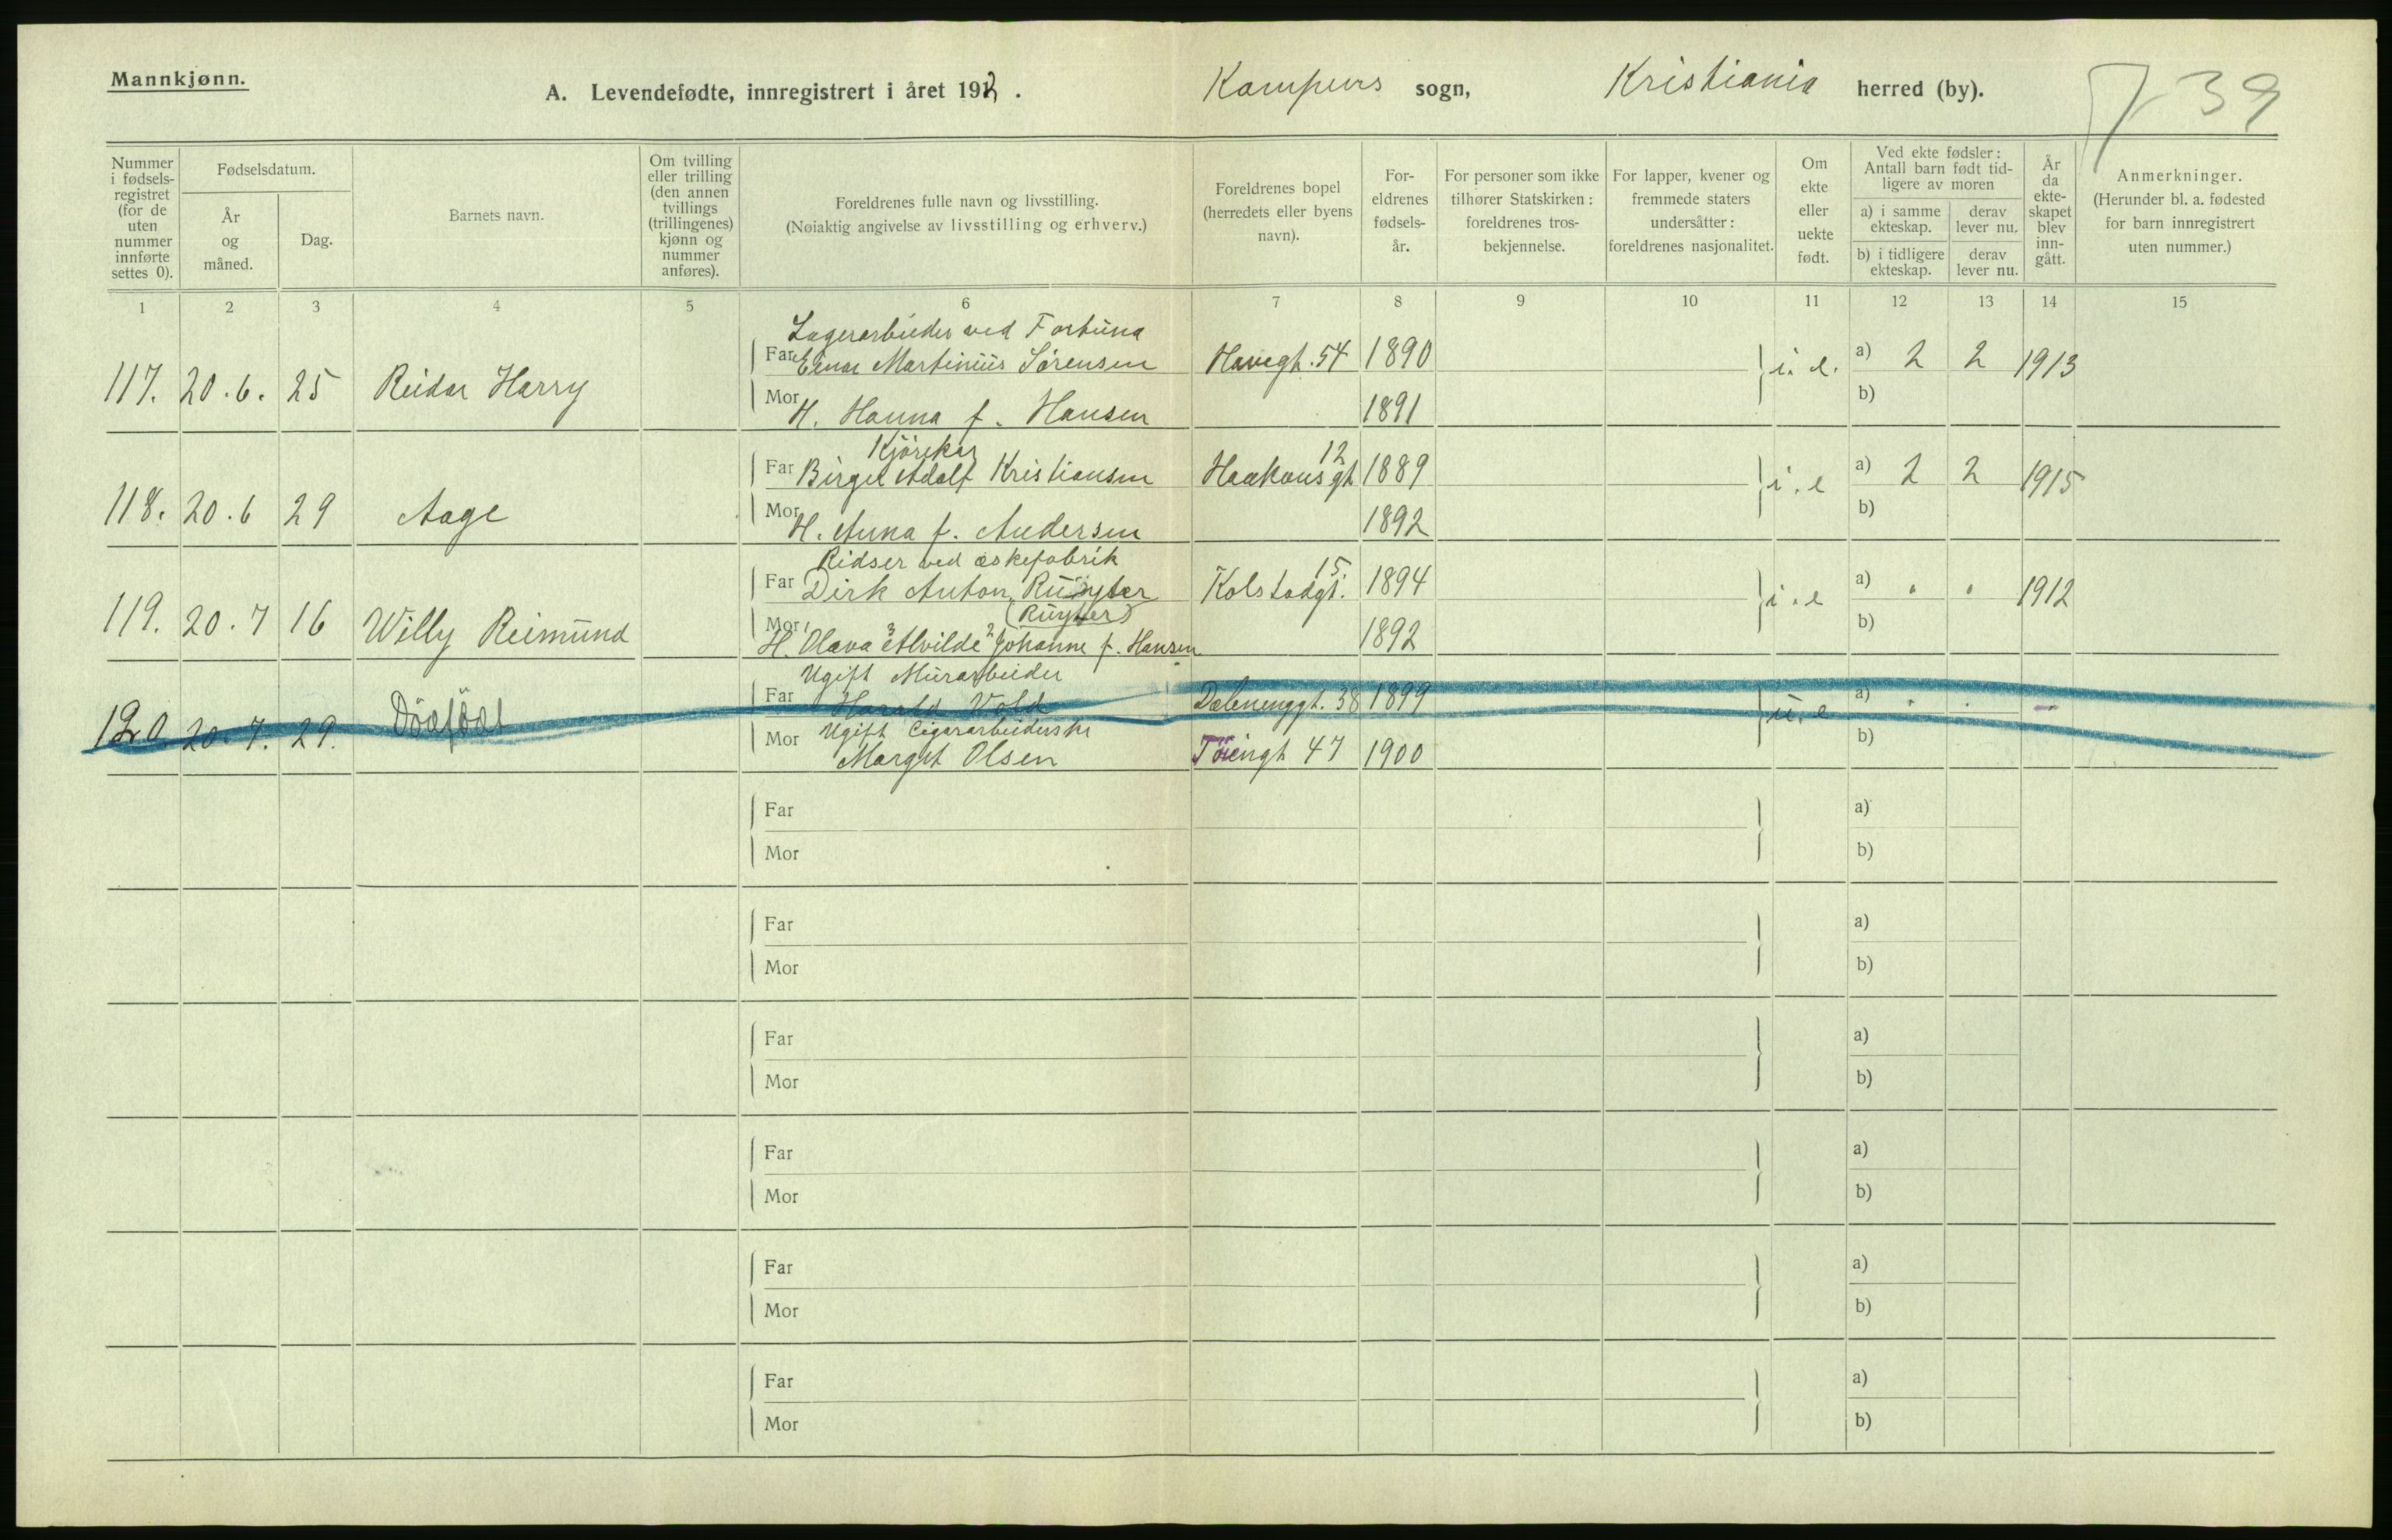 Mannkjønn.
A. Levendefødte, innregistrert i året 192 .
Kampens sogn, Kristiania herred (by).
39
Nummer i fødsels-registret (for de uten nummer innførte settes 0).
Fødselsdatum.
År og måned.
Dag.
Barnets navn.
Om tvilling eller trilling (den annen tvillings (trillingenes) kjønn og nummer anføres).
Foreldrenes fulle navn og livsstilling.
(Nøiaktig angivelse av livsstilling og erhverv.)
Foreldrenes bopel (herredets eller byens navn).
For-eldrenes fødsels-år.
For personer som ikke tilhører Statskirken: foreldrenes tros-bekjennelse.
For lapper, kvener og fremmede staters undersåtter: foreldrenes nasjonalitet.
Om ekte eller uekte født.
Ved ekte fødsler: Antall barn født tid-ligere av moren
a) i samme ekteskap.
derav lever nu.
b) i tidligere ekteskap.
derav lever nu.
År da ekte-skapet blev inn-gått.
Anmerkninger.
(Herunder bl. a. fødested for barn innregistrert uten nummer.)
1 2 3 4 5 6 7 8 9 10 11 12 13 14 15
Lagerarbeider ved Fortuna
117. 20.6. 25 Reidar Harry Far Einar Martinius Sørensen Havegt. 54 1890 i. e. a) 2 2 1913
Mor H. Hanna f. Hansen 1891 b)
Kjørekar 12
118. 20.6 29 Aage Far Birger Adolf Kristiansen Haakonsgt 1889 i. e a) 2 2 1915
Mor H. Anna f. Andersen 1892 b)
Ridser ved æskefabrik 15
119. 20.7 16 Willy Reimund Far Dirk Anton Ruyter Kolstadgt. 1894 i. e a) " " 1912
(Ruyter)
Mor H. Olava 3 Alvilde 2 Johanne f. Hansen 1892 b)
Ugift Murarbeider
120. 20.7. 29. Dödfödt Far Harald Wold Dælenenggt. 38 1899 u. e a) " "
Ugift Cigararbeiderske
Mor Margit Olsen Töiengt 47 1900 b)
Far a)
Mor b)
Far a)
Mor b)
Far a)
Mor b)
Far a)
Mor b)
Far a)
Mor b)
Far a)
Mor b)